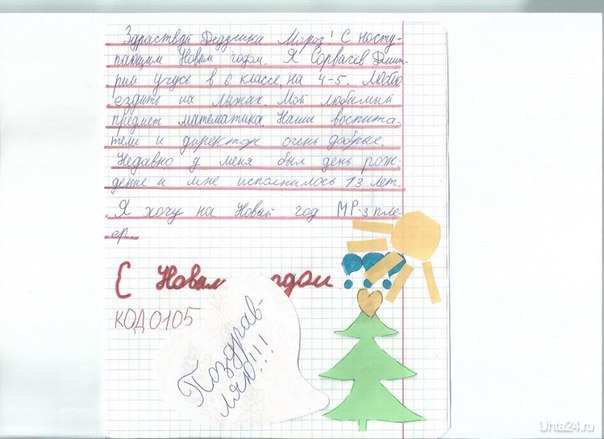 Здраствуй Дедушка Мороз! С насту-
пающим Новым годом. Я Сорвачев Дмит-
рий учусь в 6 классе, на 4-5. Люблю
ездить на лыжах. Мой любимый
предмет математика. Наши воспита-
тели и директор очень добрые.
Недавно у меня был день рож-
дение и мне исполнилось 13 лет.
Я хочу на Новый год MP-3 пле-
ер.
С Новым годом
КОД 0105
Поздрав-
ляю!!!
Uhta24.ru